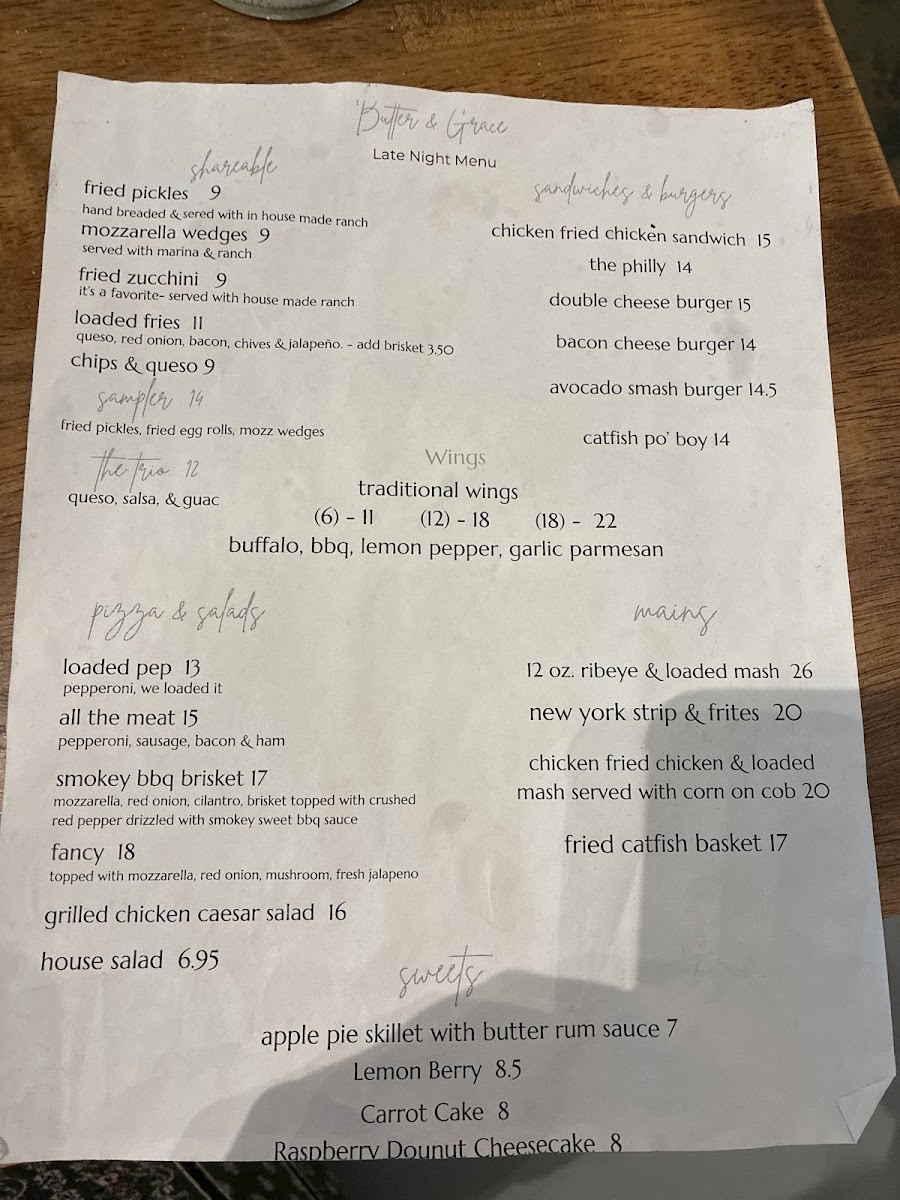 Butter & Grace
Late Night Menu
shareable
fried pickles 9
hand breaded & sered with in house made ranch
mozzarella wedges 9
served with marina & ranch
fried zucchini 9
it's a favorite- served with house made ranch
loaded fries 11
queso, red onion, bacon, chives & jalapeño. - add brisket 3.50
chips & queso 9
sampler 14
fried pickles, fried egg rolls, mozz wedges
the trio 12
queso, salsa, & guac
sandwiches & burgers
chicken fried chicken sandwich 15
the philly 14
double cheese burger 15
bacon cheese burger 14
avocado smash burger 14.5
catfish po' boy 14
Wings
traditional wings
(6) - 11 (12) - 18 (18) - 22
buffalo, bbq, lemon pepper, garlic parmesan
pizza & salads
loaded pep 13
pepperoni, we loaded it
all the meat 15
pepperoni, sausage, bacon & ham
smokey bbq brisket 17
mozzarella, red onion, cilantro, brisket topped with crushed
red pepper drizzled with smokey sweet bbq sauce
fancy 18
topped with mozzarella, red onion, mushroom, fresh jalapeno
grilled chicken caesar salad 16
house salad 6.95
mains
12 oz. ribeye & loaded mash 26
new york strip & frites 20
chicken fried chicken & loaded
mash served with corn on cob 20
fried catfish basket 17
sweets
apple pie skillet with butter rum sauce 7
Lemon Berry 8.5
Carrot Cake 8
Raspberry Dounut Cheesecake 8